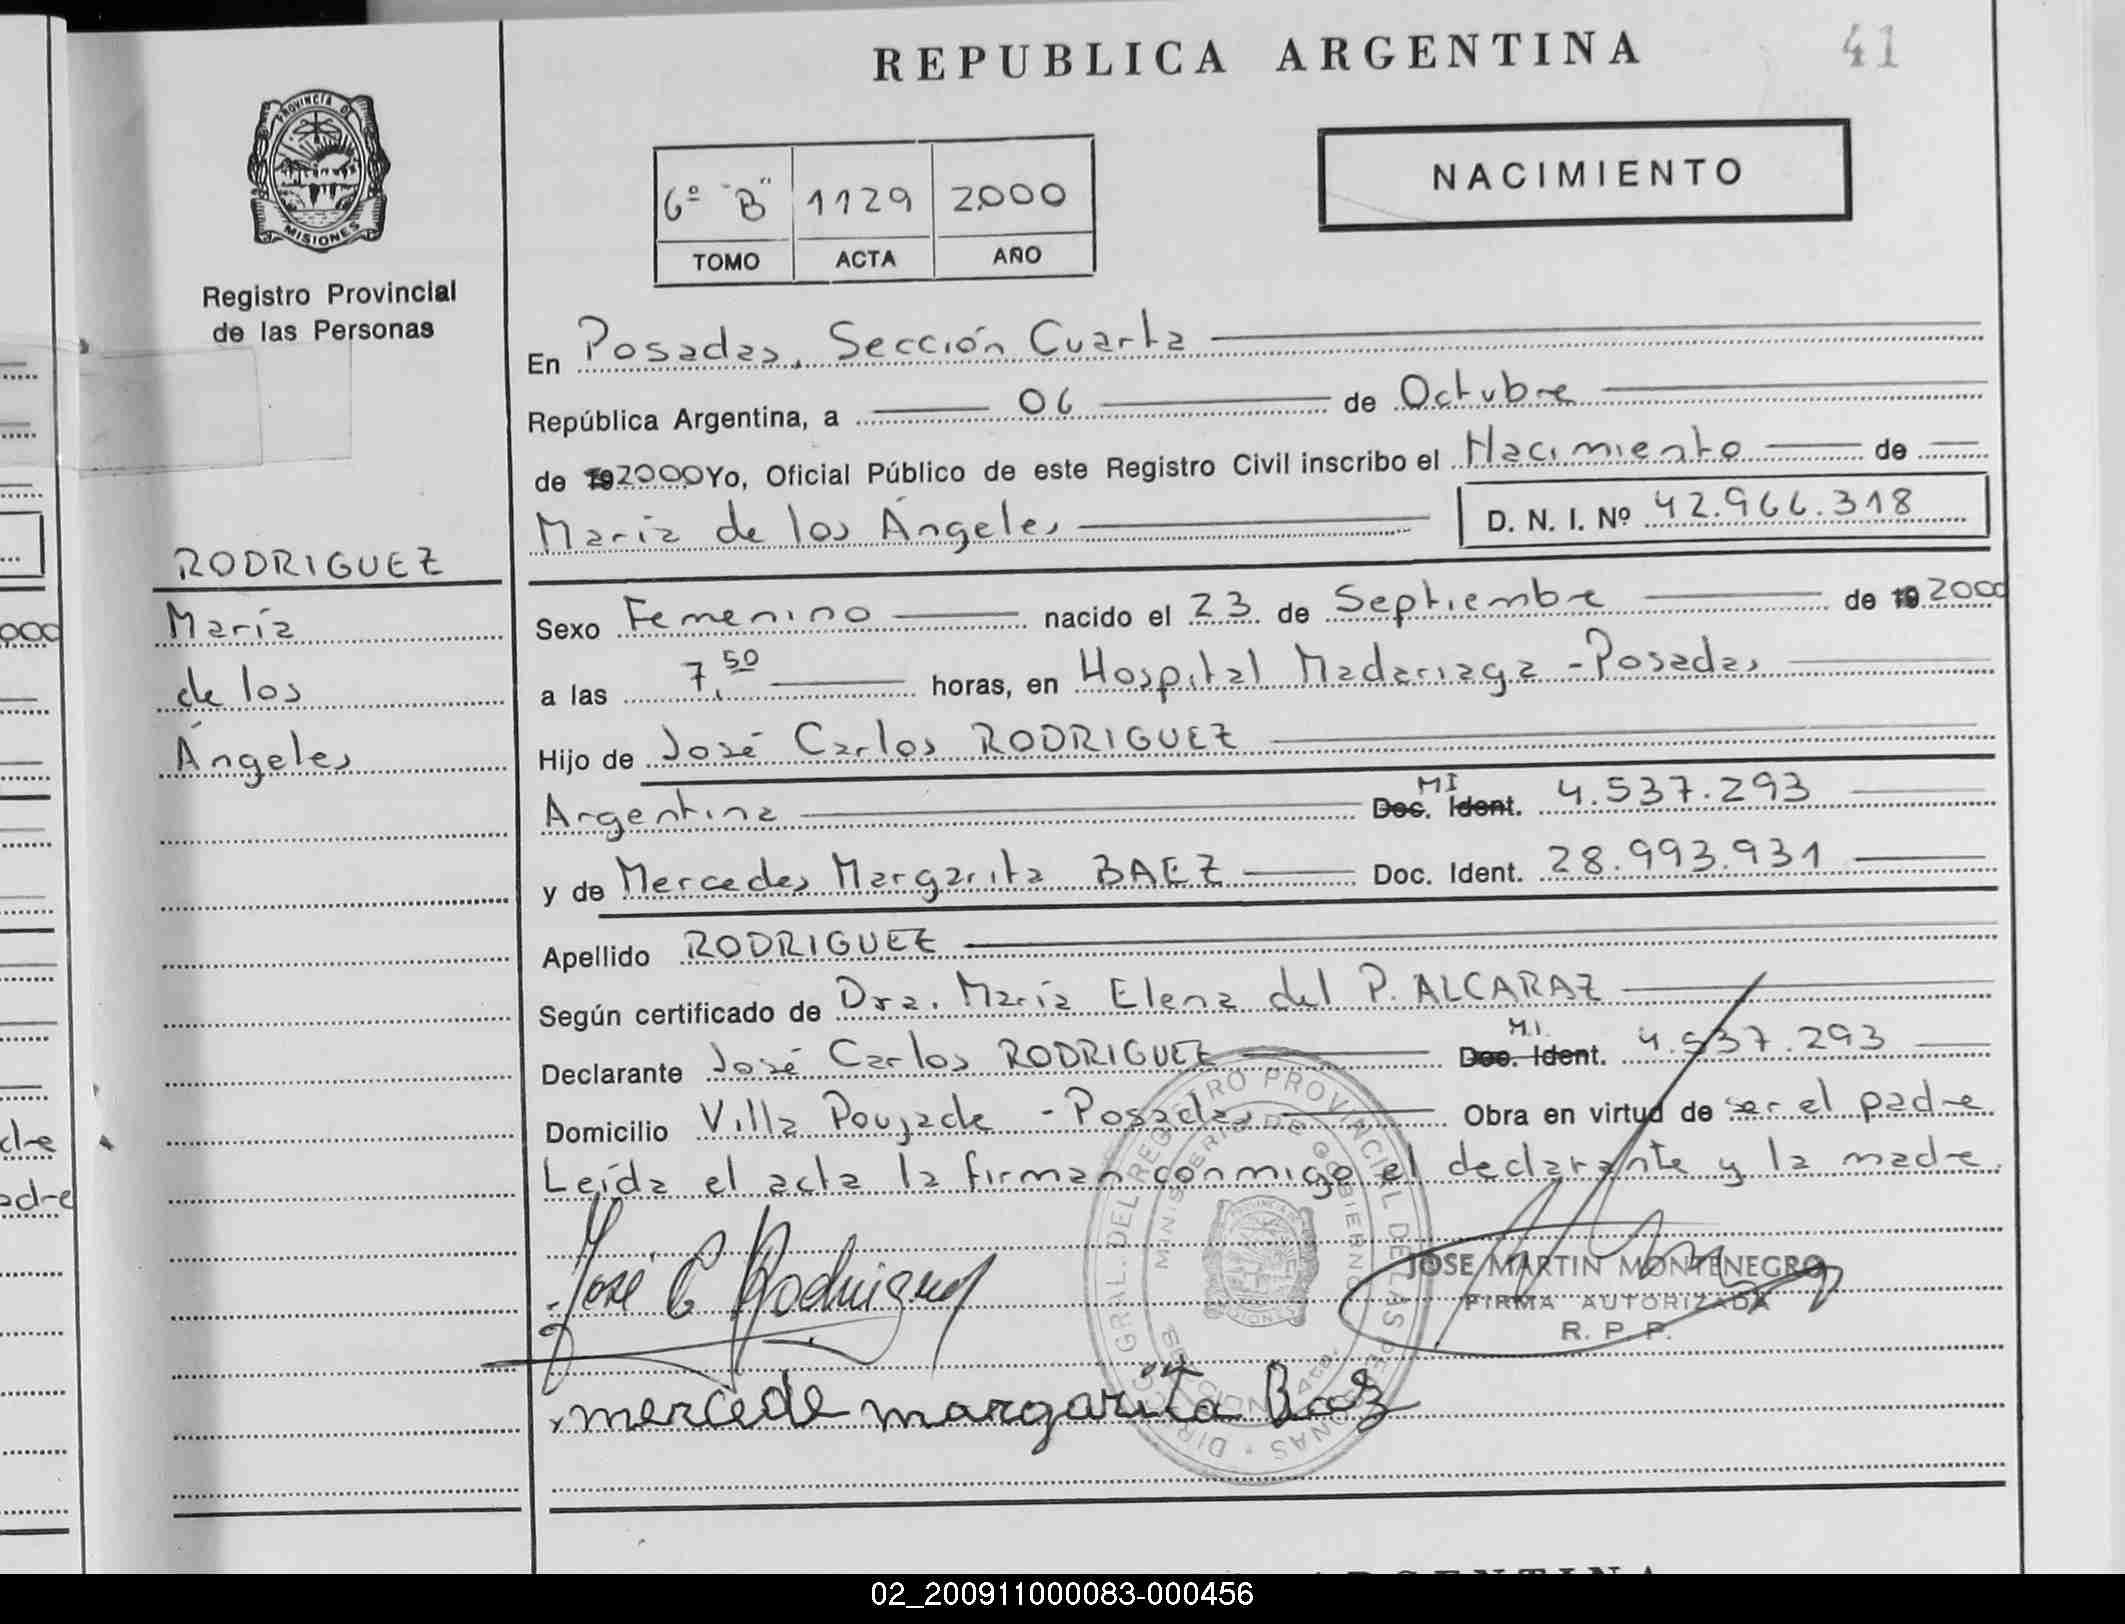 REPUBLICA ARGENTINA
41
PROVINCIA DE
MISIONES
Registro Provincial
de las Personas
NACIMIENTO
6º "B" 1129 2000
TOMO ACTA AÑO
En Posadas, Sección Cuarta
República Argentina, a 06 de Octubre
de 19 2000 Yo, Oficial Público de este Registro Civil inscribo el Nacimiento de
María de los Ángeles D. N. I. Nº 42.966.318
RODRIGUEZ
María
de los
Ángeles
Sexo Femenino nacido el 23 de Septiembre de 19 2000
a las 7,50 horas, en Hospital Madariaga - Posadas
Hijo de José Carlos RODRIGUEZ
Argentina Doc. Ident. MI 4.537.293
y de Mercedes Margarita BAEZ Doc. Ident. 28.993.931
Apellido RODRIGUEZ
Según certificado de Dra. María Elena del P. ALCARAZ
Declarante José Carlos RODRIGUEZ Doc. Ident. M.I. 4.537.293
Domicilio Villa Poujade - Posadas Obra en virtud de ser el padre
Leída el acta la firman conmigo el declarante y la madre.
José C Rodriguez
mercede margarita Baez
DIRECC. GRAL. DEL REGISTRO PROVINCIAL DE LAS PERSONAS
MINISTERIO DE GOBIERNO
SECCION 4ta.
JOSE MARTIN MONTENEGRO
FIRMA AUTORIZADA
R. P. P.
000
dre
adre
ARGENTINA
02_200911000083-000456